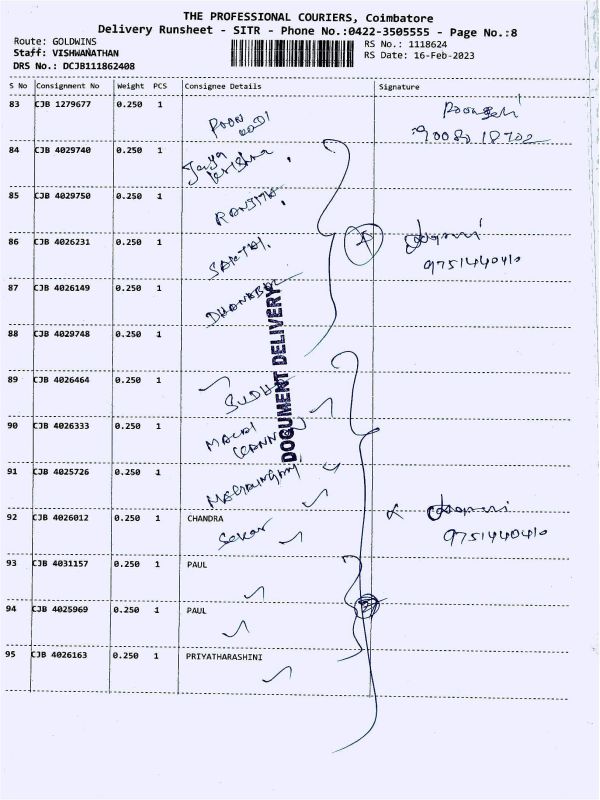 THE PROFESSIONAL COURIERS, Coimbatore
Delivery Runsheet - SITR - Phone No.:0422-3505555 - Page No.:8
Route: GOLDWINS
RS No.: 1118624
Staff: VISHWANATHAN
RS Date: 16-Feb-2023
DRS No.: DCJB111862408
S No Consignment No Weight PCS Consignee Details Signature
83 CJB 1279677 0.250 1
84 CJB 4029740 0.250 1 Jaya Krishna
85 CJB 4029750 0.250 1 RANJITH
86 CJB 4026231 0.250 1 SAKTHI
9751440410
87 CJB 4026149 0.250 1 DHANABAL
88 CJB 4029748 0.250 1
DOCUMENT DELIVERY
89 CJB 4026464 0.250 1 SUDHA
90 CJB 4026333 0.250 1
91 CJB 4025726 0.250 1
92 CJB 4026012 0.250 1 CHANDRA
Sekar
9751440410
93 CJB 4031157 0.250 1 PAUL
94 CJB 4025969 0.250 1 PAUL
95 CJB 4026163 0.250 1 PRIYATHARASHINI